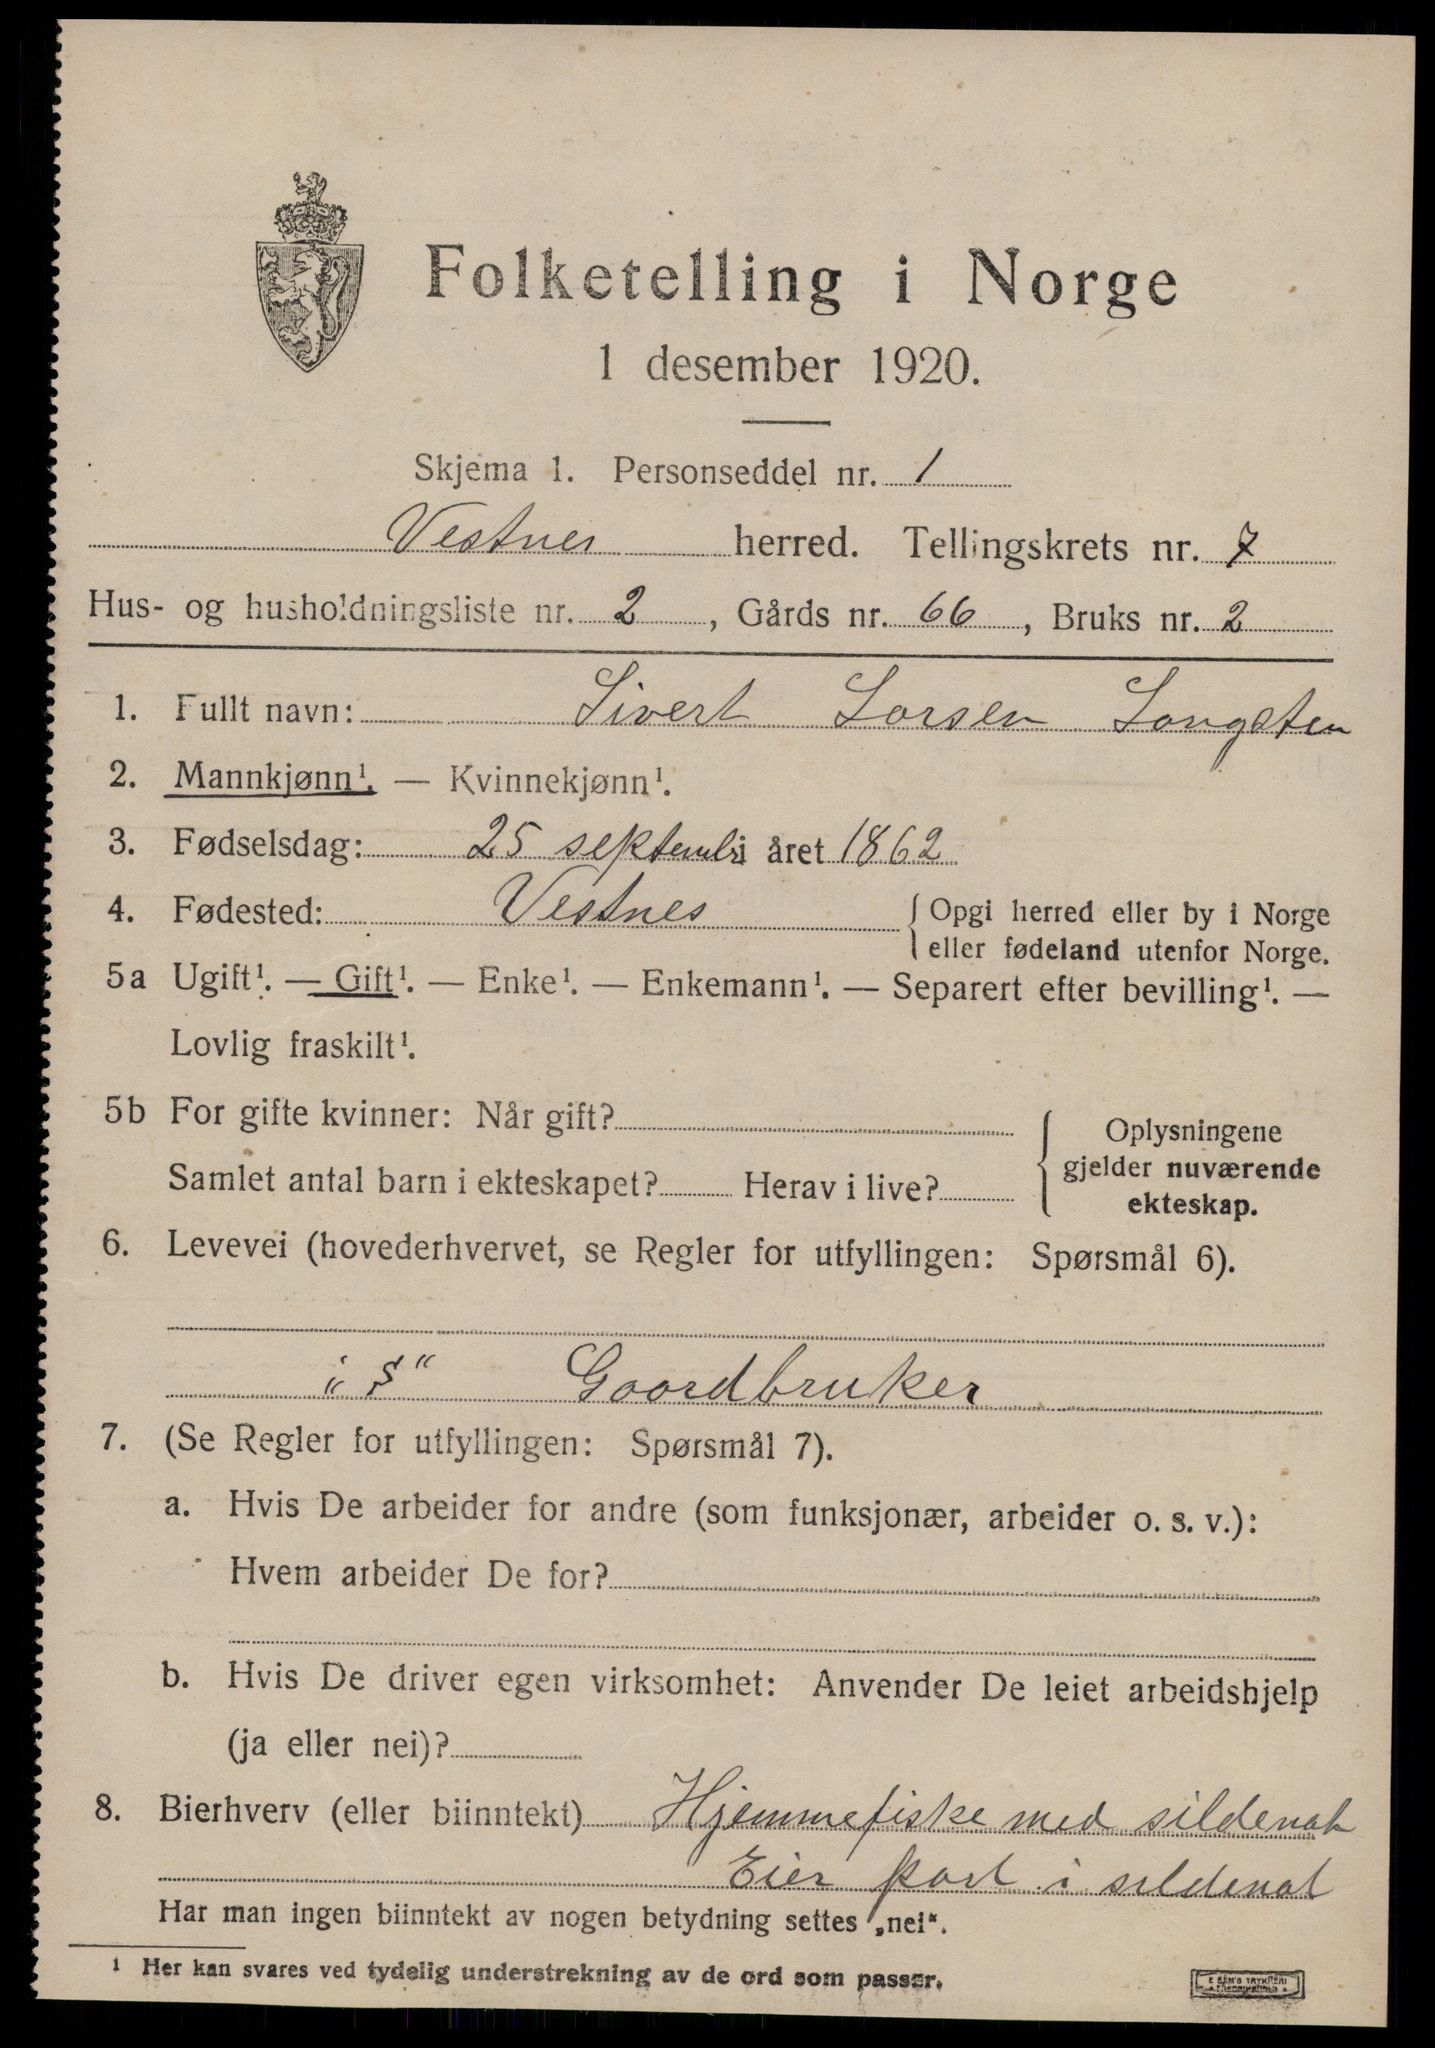 Folketelling i Norge
1 desember 1920.
Skjema 1. Personseddel nr. 1
Vestnes herred. Tellingskrets nr. 7
Hus- og husholdningsliste nr. 2, Gårds nr. 66, Bruks nr. 2
1. Fullt navn: Sivert Larsen Langsten
2. Mannkjønn¹. — Kvinnekjønn¹.
3. Fødselsdag: 25 septembr i året 1862
4. Fødested: Vestnes { Opgi herred eller by i Norge
eller fødeland utenfor Norge.
5a Ugift¹. — Gift¹. — Enke¹. — Enkemann¹. — Separert efter bevilling¹. —
Lovlig fraskilt¹.
5b For gifte kvinner: Når gift?
Samlet antal barn i ekteskapet? Herav i live?
{ Oplysningene
gjelder nuværende
ekteskap.
6. Levevei (hovederhvervet, se Regler for utfyllingen: Spørsmål 6).
„S“ Gaardbruker
7. (Se Regler for utfyllingen: Spørsmål 7).
a. Hvis De arbeider for andre (som funksjonær, arbeider o. s. v.):
Hvem arbeider De for?
b. Hvis De driver egen virksomhet: Anvender De leiet arbeidshjelp
(ja eller nei)?
8. Bierhverv (eller biinntekt) Hjemmefiske med sildenot
Eier part i sildenot
Har man ingen biinntekt av nogen betydning settes „nei“.
¹ Her kan svares ved tydelig understrekning av de ord som passer.